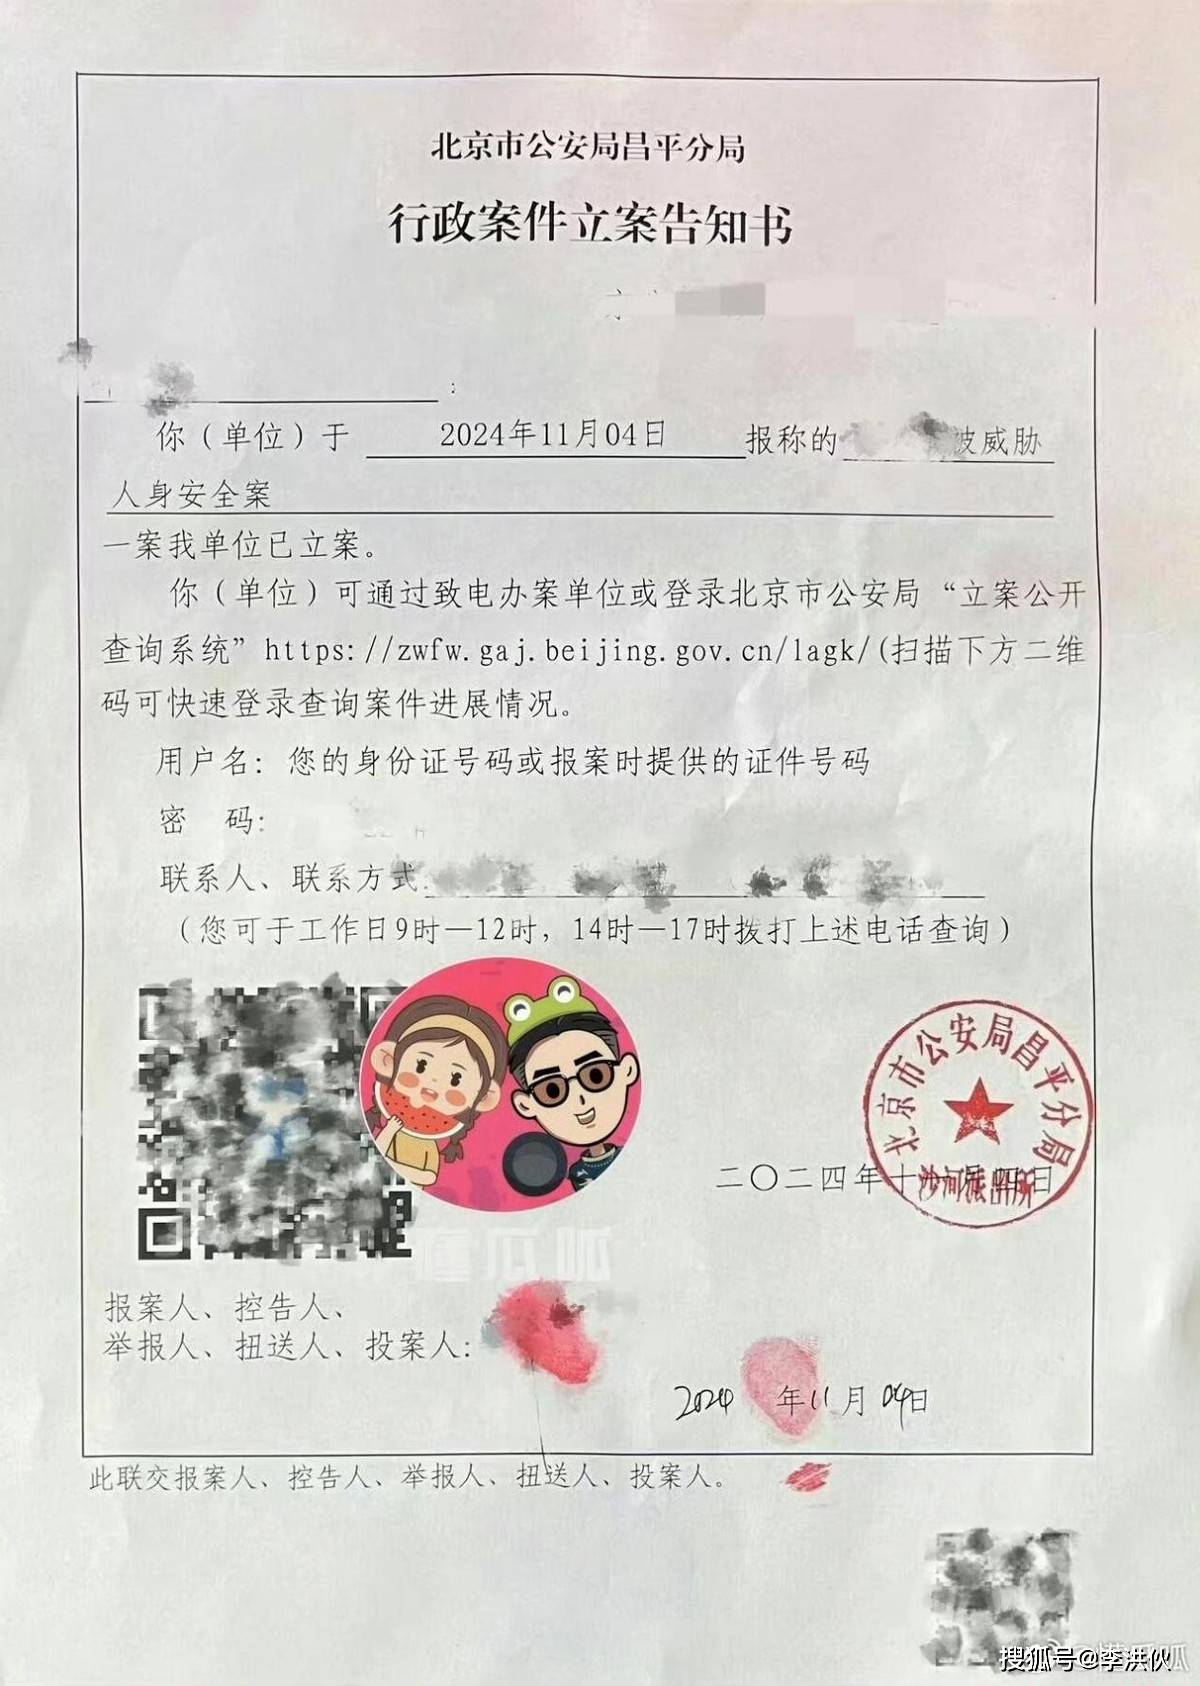 北京市公安局昌平分局
行政案件立案告知书
:
你（单位）于 2024年11月04日 报称的 被威胁
人身安全案
一案我单位已立案。
你（单位）可通过致电办案单位或登录北京市公安局“立案公开
查询系统”https://zwfw.gaj.beijing.gov.cn/lagk/(扫描下方二维
码可快速登录查询案件进展情况。
用户名：您的身份证号码或报案时提供的证件号码
密 码：
联系人、联系方式:
（您可于工作日9时—12时，14时—17时拨打上述电话查询）
北京市公安局昌平分局
沙河派出所
二〇二四年十一月四日
瓜呱
报案人、控告人、
举报人、扭送人、投案人：
2024年11月04日
此联交报案人、控告人、举报人、扭送人、投案人。
搜狐号@李洪伙